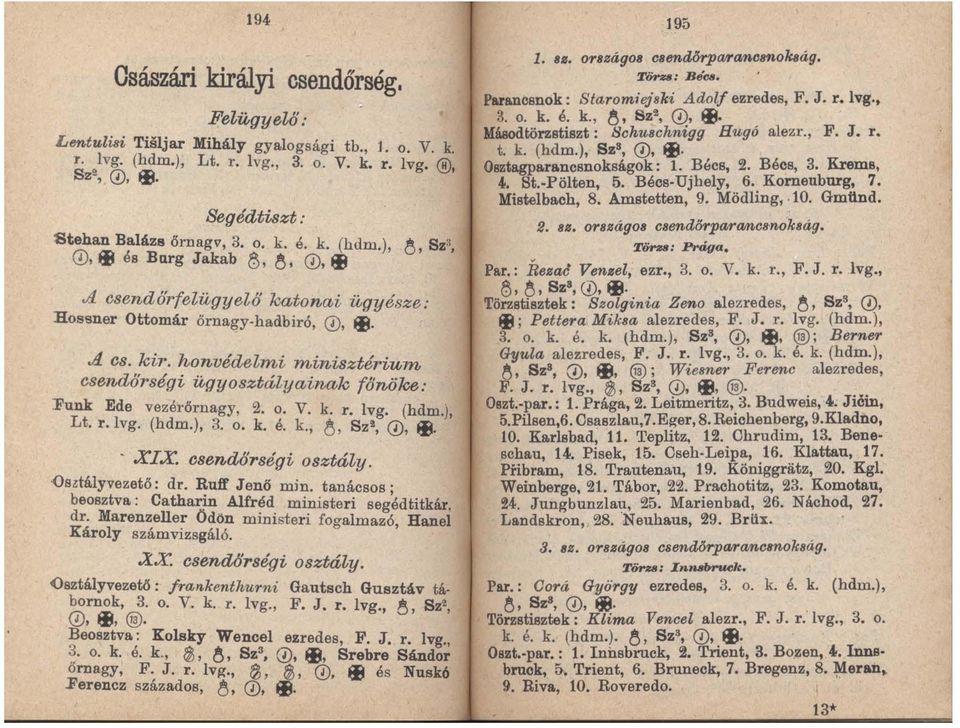 194
Császári királyi csendőrség.
Felügyelő:
Lentulisi Tišljar Mihály gyalogsági tb., 1. o. V. k.
r. lvg. (hdm.), Lt. r. lvg., 3. o. V. k. r. lvg. Ⓗ,
Sz², Ⓙ,
Segédtiszt:
Stehan Balázs őrnagy, 3. o. k. é. k. (hdm.), Sz³,
Ⓙ, és Burg Jakab Ⓙ,
A csendőrfelügyelő katonai ügyésze:
Hossner Ottomár őrnagy-hadbiró, Ⓙ,
A cs. kir. honvédelmi minisztérium
csendőrségi ügyosztályainak főnöke:
Funk Ede vezérőrnagy, 2. o. V. k. r. lvg. (hdm.),
Lt. r. lvg. (hdm.), 3. o. k. é. k., Sz², Ⓙ,
XIX. csendőrségi osztály.
Osztályvezető: dr. Ruff Jenő min. tanácsos;
beosztva: Catharin Alfréd ministeri segédtitkár,
dr. Marenzeller Ödön ministeri fogalmazó, Hanel
Károly számvizsgáló.
XX. csendőrségi osztály.
Osztályvezető: frankenthurni Gautsch Gusztáv tá-
bornok, 3. o. V. k. r. lvg., F. J. r. lvg., Sz²,
Ⓙ, ⑱.
Beosztva: Kolsky Wencel ezredes, F. J. r. lvg.,
3. o. k. é. k., Sz³, Ⓙ, Srebre Sándor
őrnagy, F. J. r. lvg., Ⓙ, és Nuskó
Ferencz százados, Ⓙ,
195
1. sz. országos csendőrparancsnokság.
Törzs: Bécs.
Parancsnok: Staromiejski Adolf ezredes, F. J. r. lvg.,
3. o. k. é. k., Sz², Ⓙ,
Másodtörzstiszt: Schuschnigg Hugó alezr., F. J. r.
t. k. (hdm.), Sz³, Ⓙ,
Osztagparancsnokságok: 1. Bécs, 2. Bécs, 3. Krems,
4. St.-Pölten, 5. Bécs-Ujhely, 6. Korneuburg, 7.
Mistelbach, 8. Amstetten, 9. Mödling, 10. Gmünd.
2. sz. országos csendőrparancsnokság.
Törzs: Prága.
Par.: Řezač Venzel, ezr., 3. o. V. k. r., F. J. r. lvg.,
Sz³, Ⓙ,
Törzstisztek: Szolginia Zeno alezredes, Sz³, Ⓙ,
; Pettera Miksa alezredes, F. J. r. lvg. (hdm.),
3. o. k. é. k. (hdm.), Sz³, Ⓙ, ⑱; Berner
Gyula alezredes, F. J. r. lvg., 3. o. k. é. k. (hdm.),
Sz³, Ⓙ, ⑱; Wiesner Ferenc alezredes,
F. J. r. lvg., Sz³, Ⓙ, ⑱.
Oszt.-par.: 1. Prága, 2. Leitmeritz, 3. Budweis, 4. Jičin,
5.Pilsen,6.Csaszlau,7.Eger,8.Reichenberg,9.Kladno,
10. Karlsbad, 11. Teplitz, 12. Chrudim, 13. Bene-
schau, 14. Pisek, 15. Cseh-Leipa, 16. Klattau, 17.
Přibram, 18. Trautenau, 19. Königgrätz, 20. Kgl.
Weinberge, 21. Tábor, 22. Prachotitz, 23. Komotau,
24. Jungbunzlau, 25. Marienbad, 26. Náchod, 27.
Landskron, 28. Neuhaus, 29. Brüx.
3. sz. országos csendőrparancsnokság.
Törzs: Innsbruck.
Par.: Corá György ezredes, 3. o. k. é. k. (hdm.),
Sz³, Ⓙ,
Törzstisztek: Klima Vencel alezr., F. J. r. lvg., 3. o.
k. é. k. (hdm.). Sz³, Ⓙ,
Oszt.-par.: 1. Innsbruck, 2. Trient, 3. Bozen, 4. Inns-
bruck, 5. Trient, 6. Bruneck, 7. Bregenz, 8. Meran,
9. Riva, 10. Roveredo.
13*